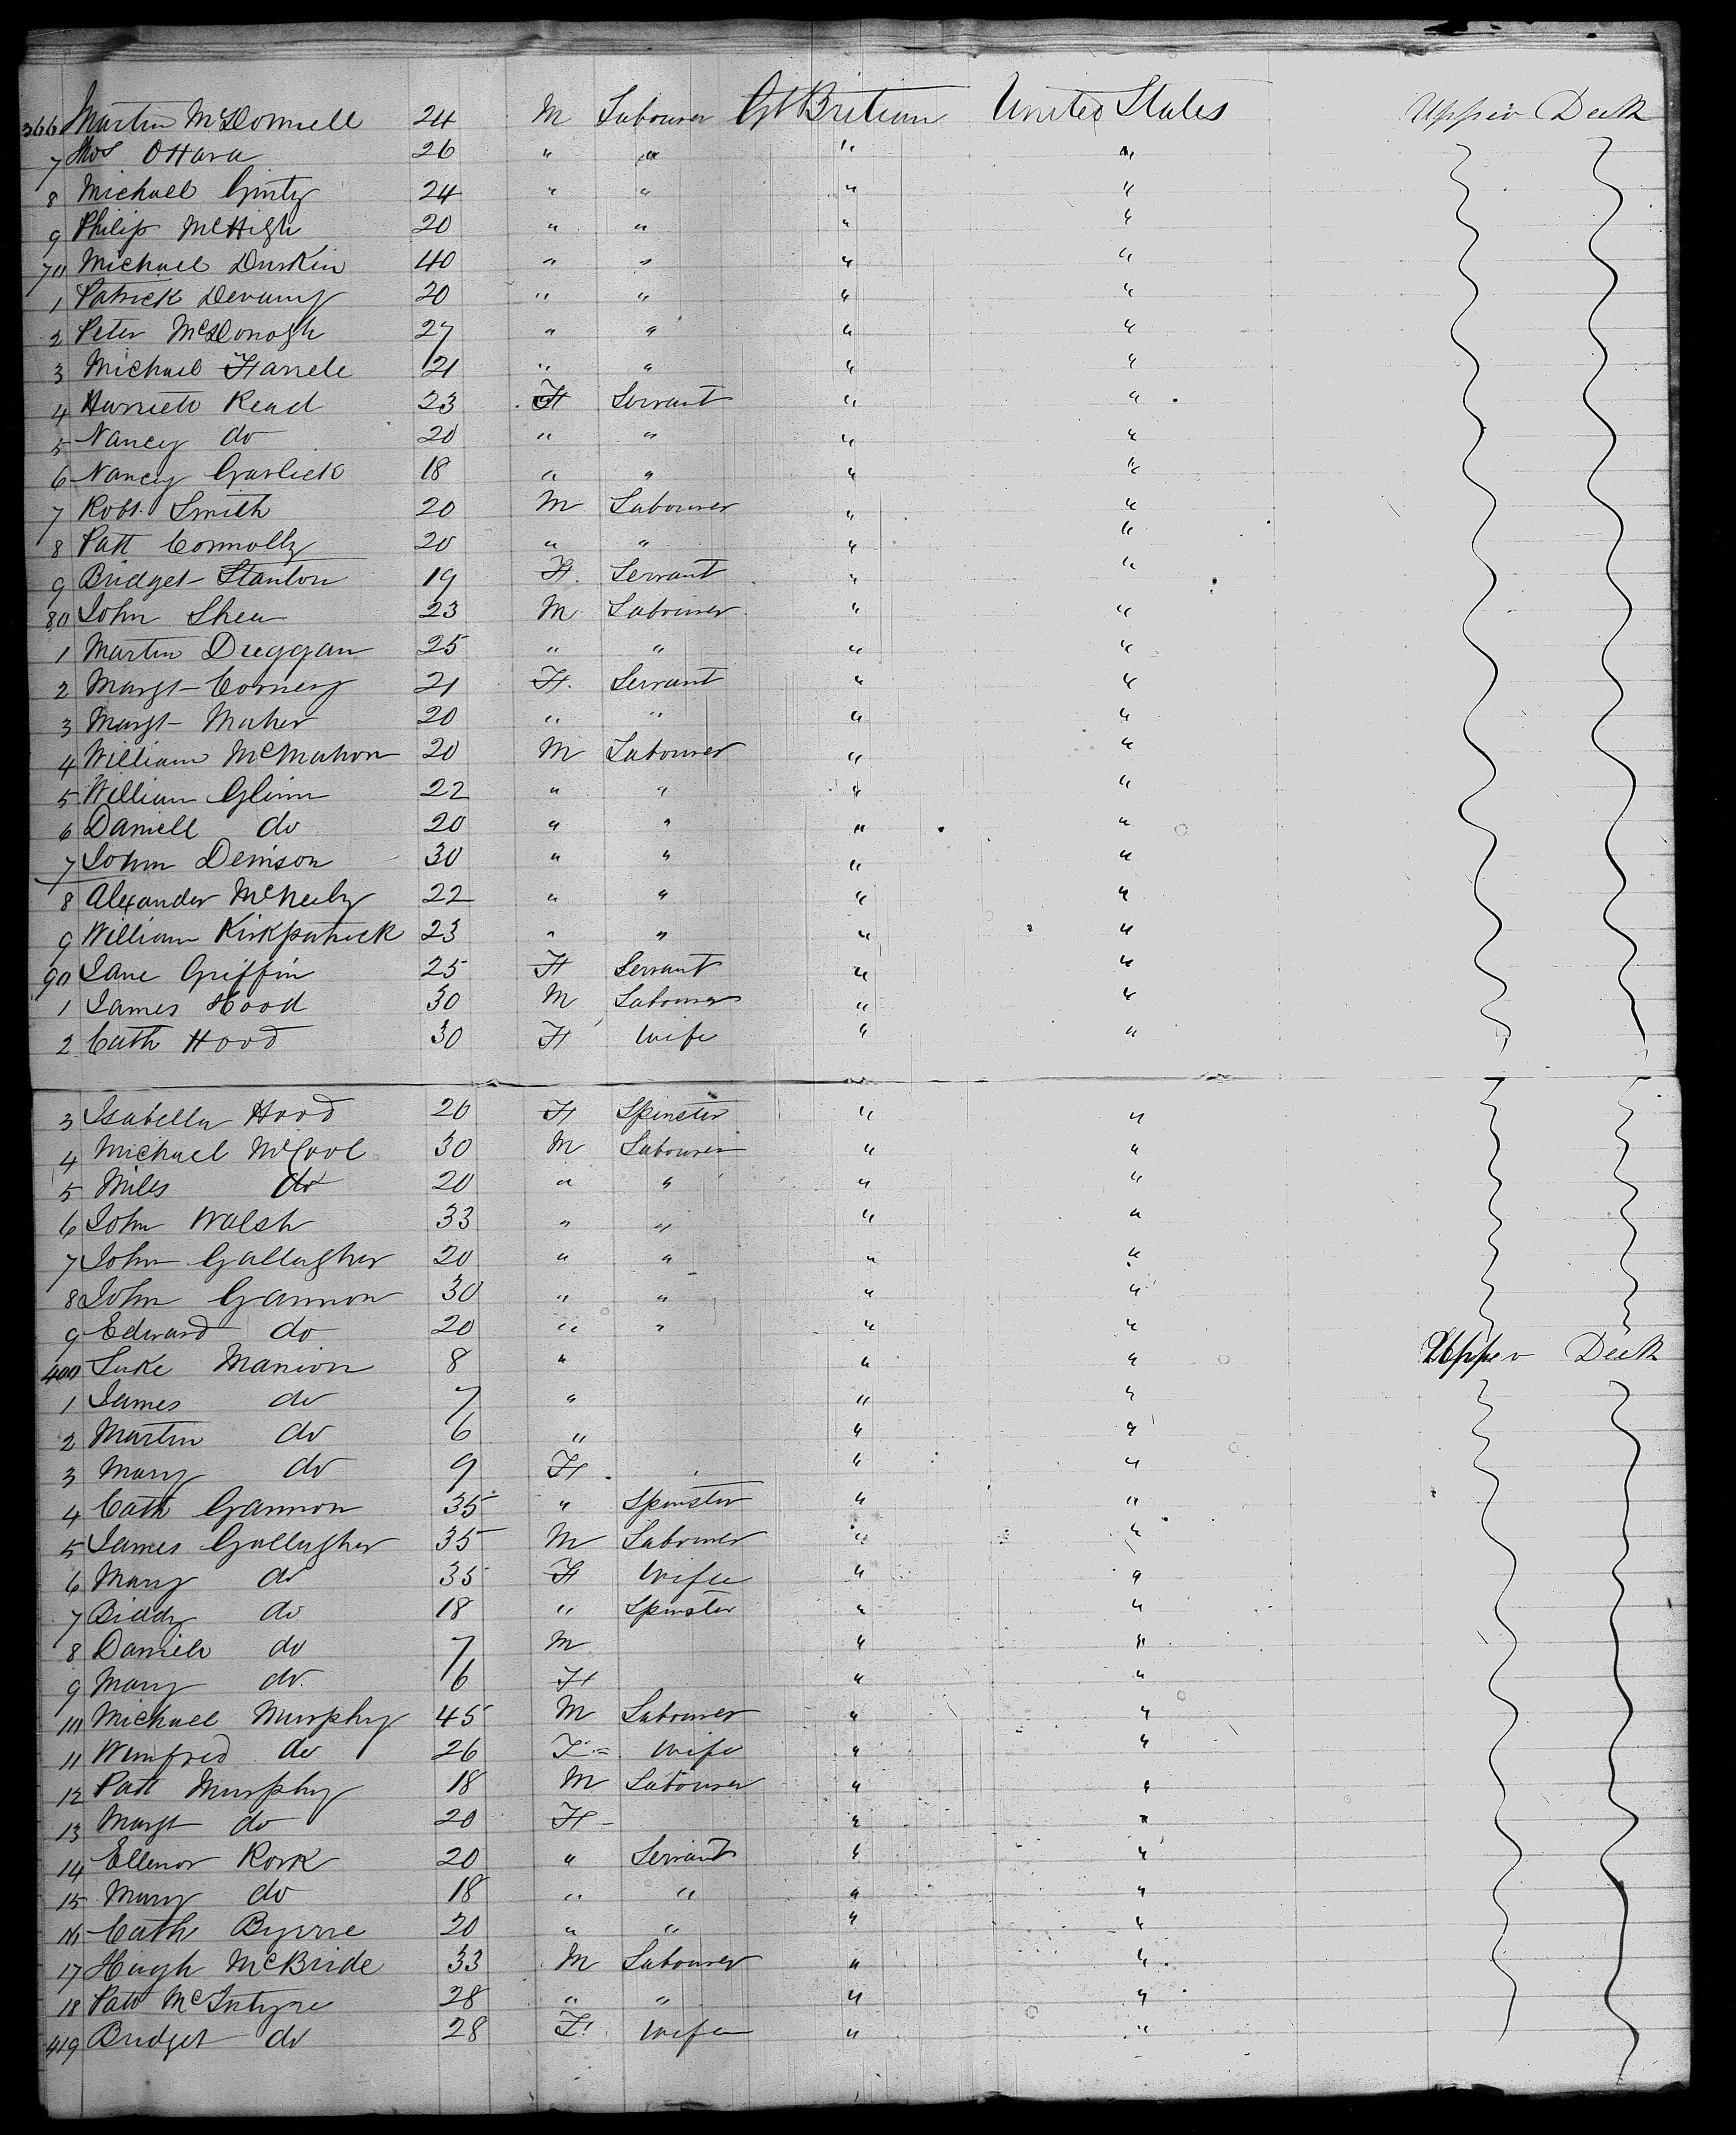 366 Martin McDonnell 24 M Labourer Gt Britian United States Upper Deck
7 Thos OHara 26 " " " "
8 Michael Ginty 24 " " " "
9 Philip McHigh 20 " " " "
70 Michael Durkin 40 " " " "
1 Patrick Devany 20 " " " "
2 Peter McDonogh 27 " " " "
3 Michael 21 " " " "
4 Harriett Read 23 F Servant " "
5 Nancy do 20 " " " "
6 Nancy Garlick 18 " " " "
7 Robt. Smith 20 M Labourer " "
8 Patt Connolly 20 " " " "
9 Bridget Stanton 19 F. Servant " "
80 John Shea 23 M Labourer " "
1 Martin Duggan 25 " " " "
2 Margt Corney 21 F. Servant " "
3 Margt Maher 20 " " " "
4 William McMahon 20 M Labourer " "
5 William Glinn 22 " " " "
6 Daniell do 20 " " " "
7 John Denison 30 " " " "
8 Alexander McNeely 22 " " " "
9 William Kirkpatrick 23 " " " "
90 Jane Griffin 25 F Servant " "
1 James Hood 30 M Labourer " "
2 Cath Hood 30 F Wife " "
3 Isabella Hood 20 F Spinster " "
4 Michael McCool 30 M Labourer " "
5 Miles do 20 " " " "
6 John Walsh 33 " " " "
7 John Gallagher 20 " " " "
8 John Gannon 30 " " " "
9 Edward do 20 " " " "
400 Luke Manion 8 " " " Upper Deck
1 James do 7 " " "
2 Martin do 6 " " "
3 Mary do 9 F. " "
4 Cath Gannon 35 " Spinster " "
5 James Gallagher 35 M Labourer " "
6 Mary do 35 F Wife " "
7 Biddy do 18 " Spinster " "
8 Daniell do 7 M " "
9 Mary do. 6 F " "
10 Michael Murphy 45 M Labourer " "
11 Winfred do 26 F Wife " "
12 Patt Murphy 18 M Labourer " "
13 Margt do 20 F " "
14 Ellenor Rork 20 " Servant " "
15 Mary do 18 " " " "
16 Cath Byrne 20 " " " "
17 Hugh McBride 33 M Labourer " "
18 Patt McIntyre 28 " " " "
419 Bridget do 28 F Wife " "